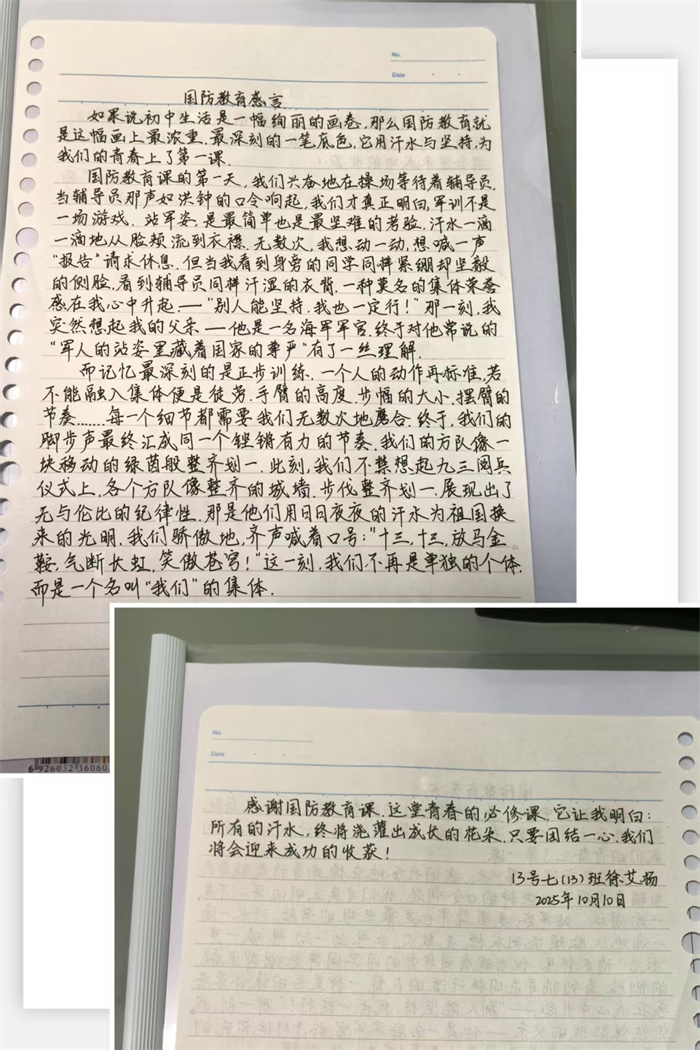 No.
Date
国防教育感言
如果说初中生活是一幅绚丽的画卷,那么国防教育就
是这幅画上最浓重,最深刻的一笔底色,它用汗水与坚持,为
我们的青春上了第一课.
国防教育课的第一天,我们兴奋地在操场等待着辅导员,
当辅导员那声如洪钟的口令响起,我们才真正明白,军训不是
一场游戏.站军姿,是最简单也是最坚难的考验,汗水一滴
一滴地从脸颊流到衣襟.无数次,我想动一动,想喊一声
“报告”请求休息.但当我看到身旁的同学同样紧绷却坚毅
的侧脸,看到辅导员同样汗湿的衣背,一种莫名的集体荣誉
感在我心中升起.——“别人能坚持,我也一定行!”那一刻,我
突然想起我的父亲——他是一名海军军官.终于对他常说的
“军人的站姿里藏着国家的尊严”有了一丝理解.
而记忆最深刻的是正步训练.一个人的动作再标准,若
不能融入集体便是徒劳.手臂的高度,步幅的大小,摆臂的
节奏.......每一个细节都需要我们无数次地磨合.终于,我们的
脚步声最终汇成同一个铿锵有力的节奏,我们的方队像一
块移动的绿茵般整齐划一.此刻,我们不禁想起九三阅兵
仪式上,各个方队像整齐的城墙.步伐整齐划一,展现出了
无与伦比的纪律性.那是他们用日日夜夜的汗水为祖国换
来的光明.我们骄傲地,齐声喊着口号:“十三,十三,放马金
鞍,气断长虹,笑傲苍穹!”这一刻,我们不再是单独的个体,
而是一个名叫“我们”的集体.
6 926032 36060
No.
Date
感谢国防教育课.这堂青春的必修课.它让我明白:
所有的汗水,终将浇灌出成长的花朵.只要团结一心,我们
将会迎来成功的收获!
13号七(13)班徐艾杨
2025年10月10日